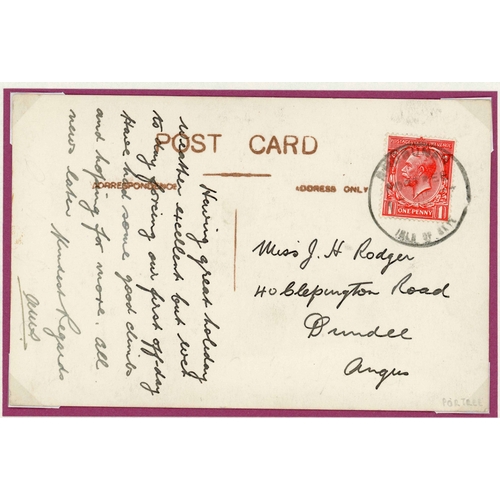 POST CARD
CORRESPONDENCE
ADDRESS ONLY
Having great holiday
weather excellent but wet
to day forcing our first off-day
Have had some good climbs
and hoping for more. All
news later Kindest Regards
Miss J. H Rodger
40 Clepington Road
Dundee
Angus
ONE PENNY
1
1
ISLE OF SKYE
PORTREE